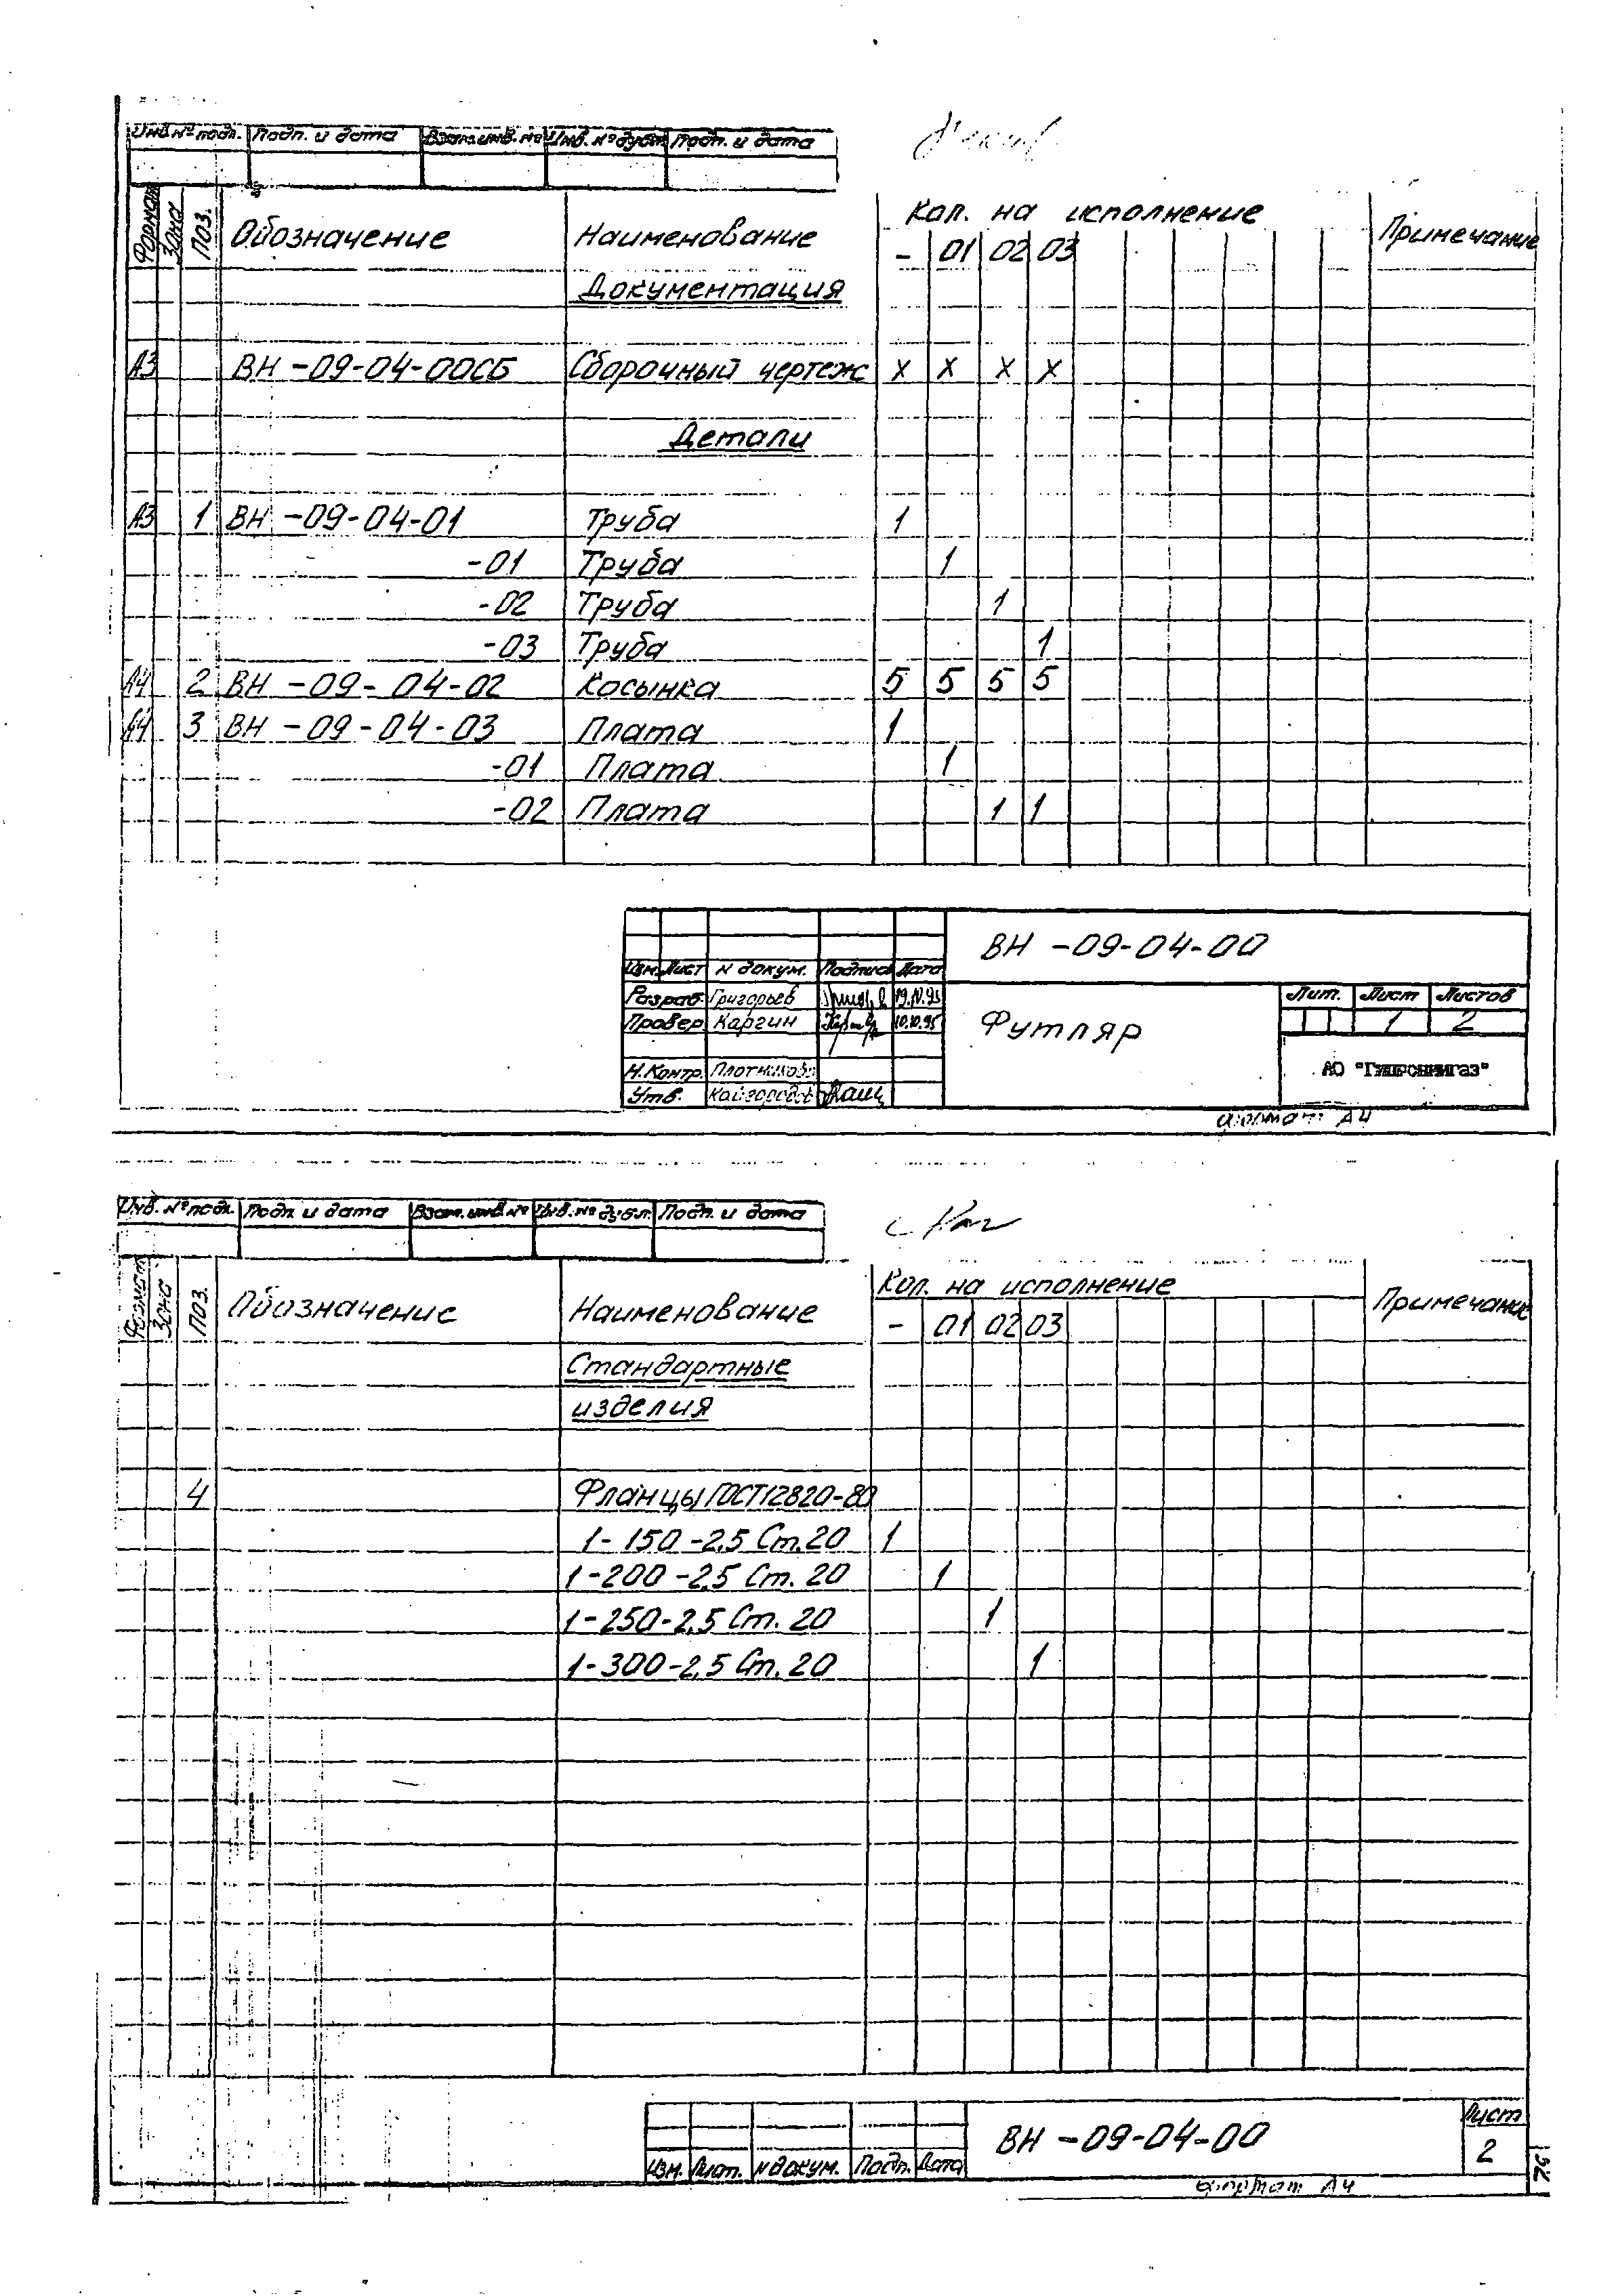 Инв № подл. Подп. и дата Взам. инв. № Инв. № дубл. Подп. и дата
Формат Зона Поз. Обозначение Наименование Кол. на исполнение Примечание
- 01 02 03
Документация
А3 ВН -09-04-00СБ Сборочный чертеж х х х х
Детали
А3 1 ВН -09-04-01 Труба 1
-01 Труба 1
-02 Труба 1
-03 Труба 1
А4 2 ВН -09-04-02 Косынка 5 5 5 5
А4 3 ВН -09-04-03 Плата 1
-01 Плата 1
-02 Плата 1 1
ВН -09-04-00
Изм. Лист N докум. Подпись Дата
Разраб. Григорьев
Провер. Каргин 10.10.95
Н.Контр. Плотникова
Утв. Кайгородов
Футляр
Лит. Лист Листов
1 2
АО "Гипрониигаз"
Формат А4
Инв. № подл. Подп. и дата Взам. инв. № Инв. № дубл. Подп. и дата
Формат Зона Поз. Обозначение Наименование Кол. на исполнение Примечание
- 01 02 03
Стандартные
изделия
4 Фланцы ГОСТ 12820-80
1-150-2,5 Ст.20 1
1-200-2,5 Ст. 20 1
1-250-2,5 Ст. 20 1
1-300-2,5 Ст. 20 1
Изм. Лист. N докум. Подп. Дата
ВН -09-04-00
Лист
2
Формат А4